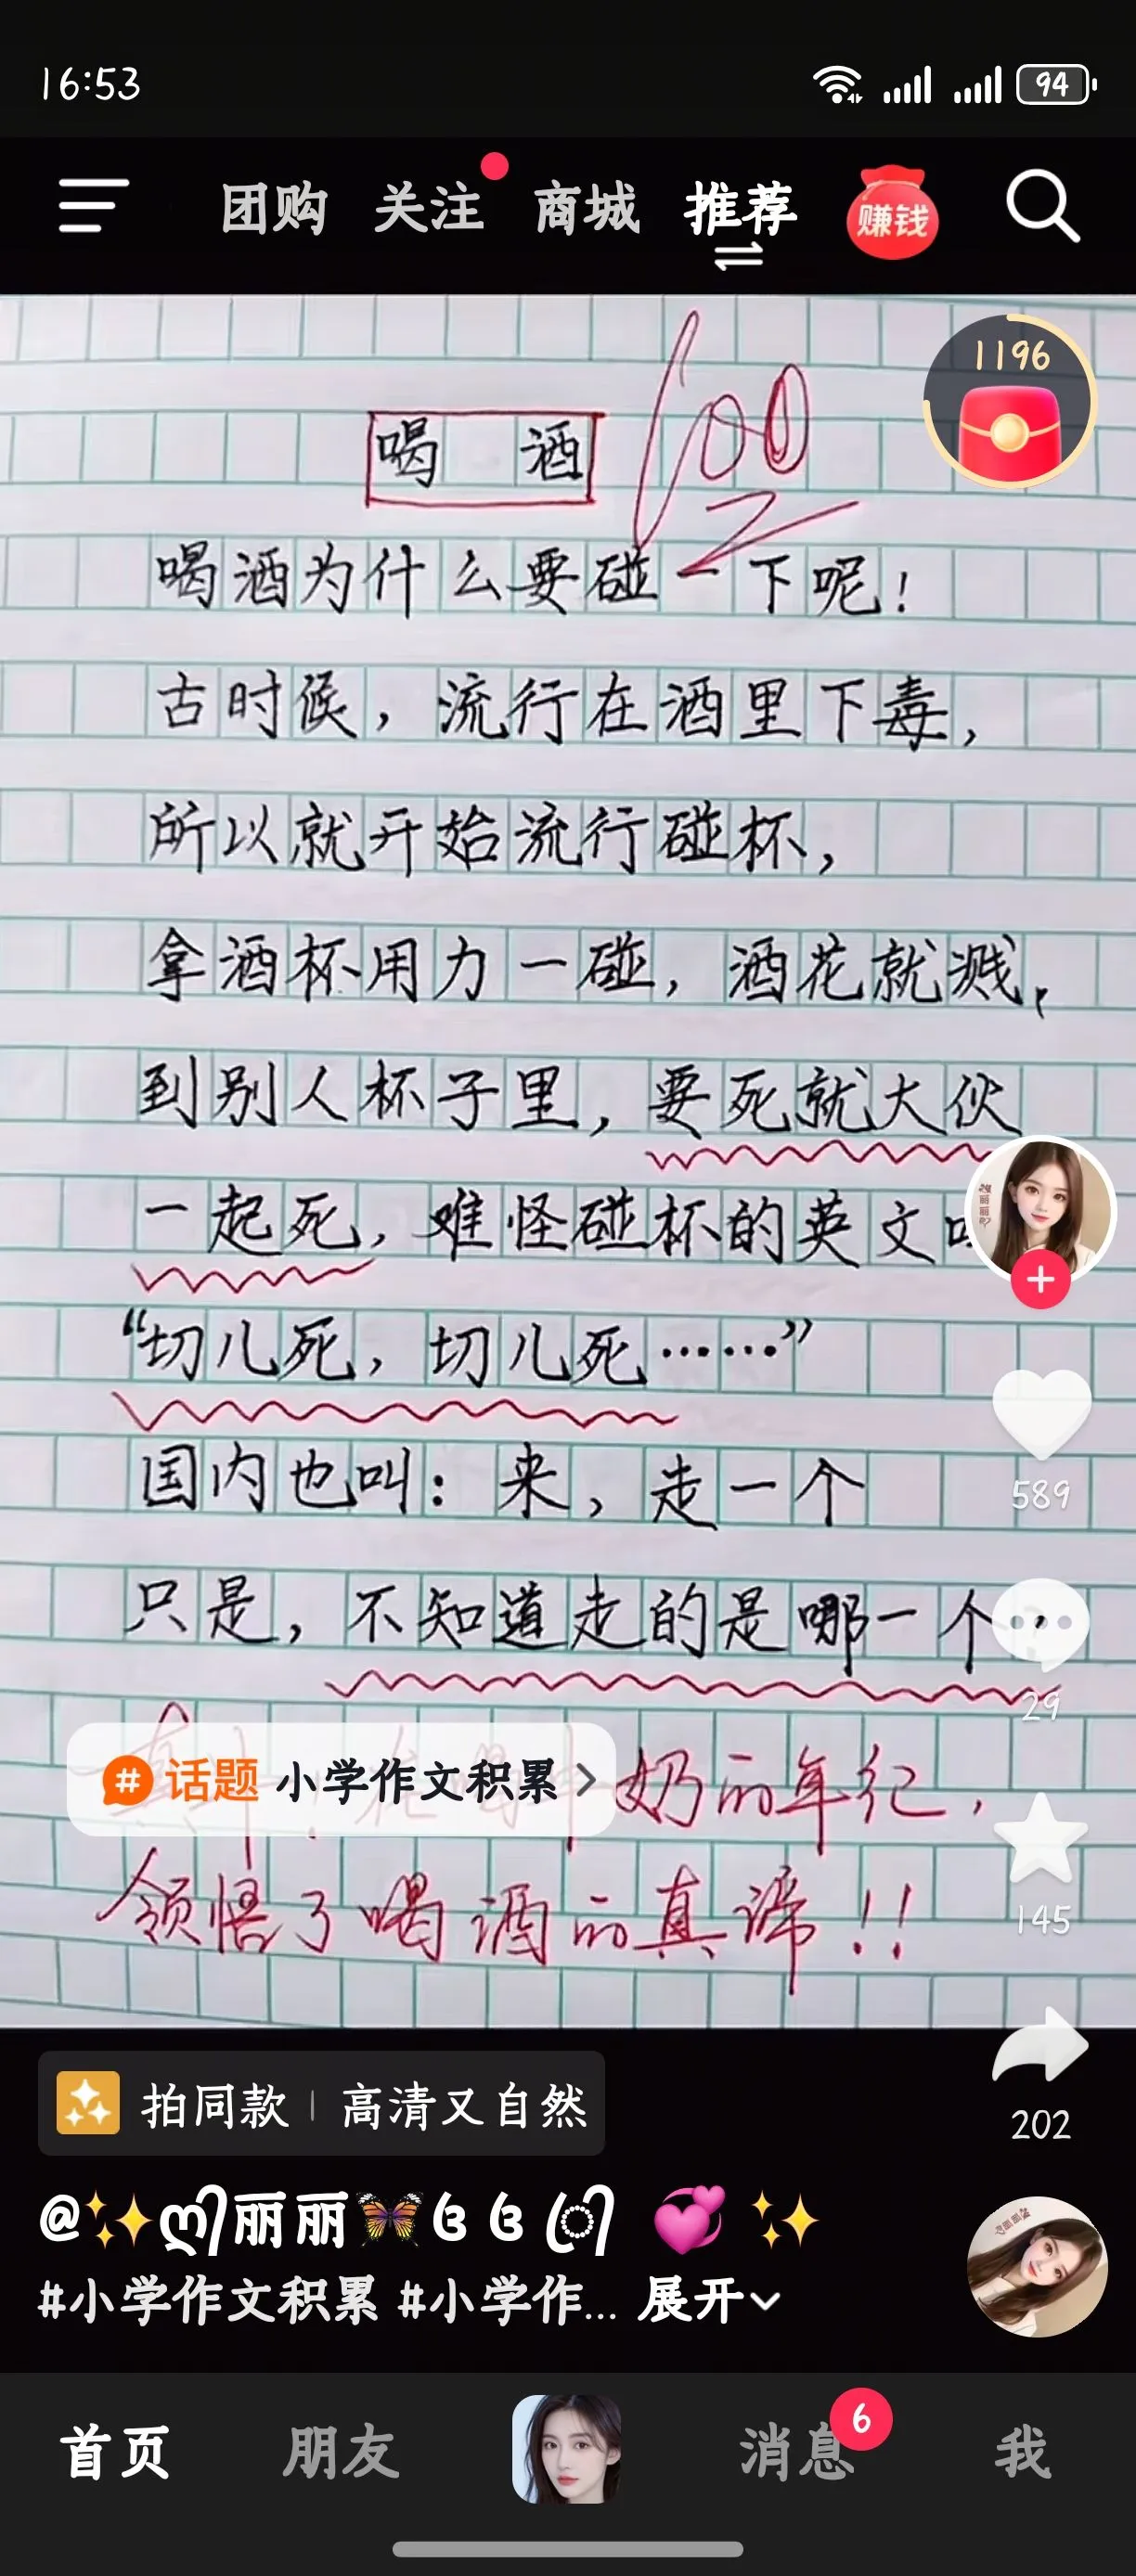 16:53
94
团购 关注 商城 推荐 赚钱
1196
喝 酒
100
喝酒为什么要碰一下呢!
古时候,流行在酒里下毒,
所以就开始流行碰杯,
拿酒杯用力一碰,酒花就溅,
到别人杯子里,要死就大伙
一起死,难怪碰杯的英文
“切儿死,切儿死……”
国内也叫:来,走一个
只是,不知道走的是哪一个,
589
29
话题 小学作文积累
奶的年纪,
领悟了喝酒的真谛!!
145
202
拍同款 | 高清又自然
@✨ 丽丽🦋 💞 ✨
#小学作文积累 #小学作... 展开
首页 朋友 消息 6 我